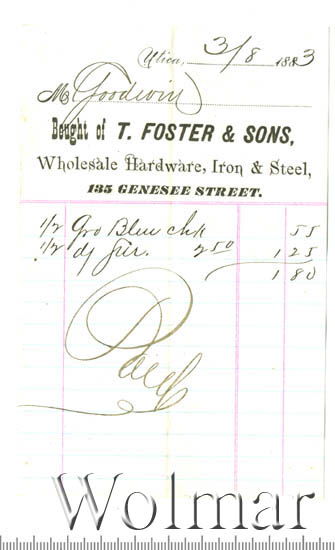 Utica, 3/8 1883
M Goodwin
Bought of T. FOSTER & SONS,
Wholesale Hardware, Iron & Steel,
135 GENESEE STREET.
1/2 Gro Blue chk 55
1/2 dz 2 50 1 25
1 80
Paid
Wolmar